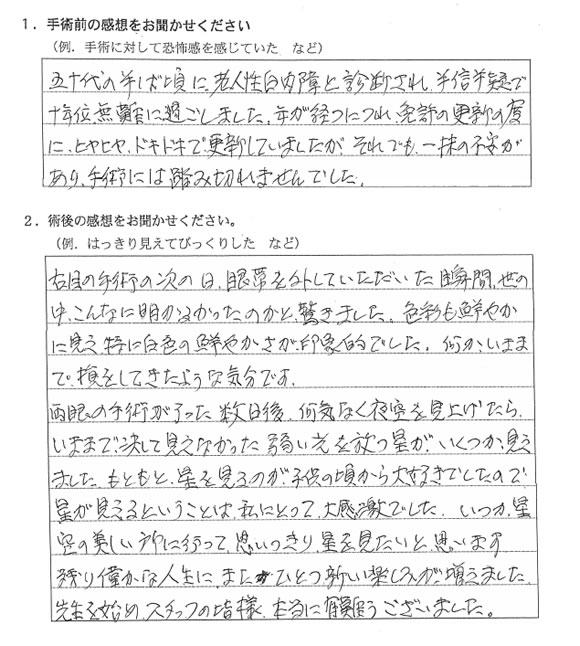 1．手術前の感想をお聞かせください
（例．手術に対して恐怖感を感じていた　など）
五十代の半ば頃に、老人性白内障と診断され、半信半疑で
十年位、無難に過ごしました。年が経つにつれ、免許の更新の度
に、ヒヤヒヤ、ドキドキで更新していましたが、それでも、一抹の不安が
あり、手術には踏み切れませんでした。
2．術後の感想をお聞かせください。
（例．はっきり見えてびっくりした　など）
右目の手術の次の日、眼帯を外していただいた瞬間、世の
中、こんなに明かるかったのかと、驚きました。色彩も鮮やか
に見え、特に白色の鮮やかさが印象的でした。何か、いまま
で、損をしてきたような気分です。
両眼の手術が了った数日後、何気なく夜空を見上げたら、
いままで決して見えなかった弱い光を放つ星が、いくつか見え
ました。もともと、星を見るのが子供の頃から大好きでしたので、
星が見えるということは、私にとって、大感激でした。いつか、星
空の美しい所に行って、思いっきり、星を見たいと、思います。
残り僅かな人生に、また、ひとつ新しい楽しみが増えました。
先生を始め、スタッフの皆様、本当に有難うございました。